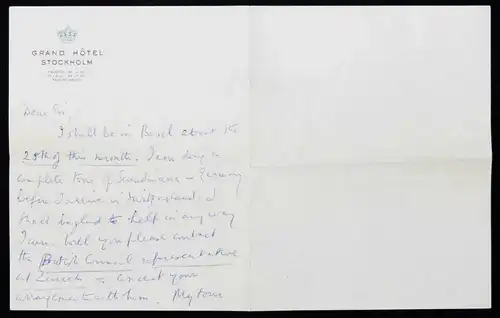 GRAND HÔTEL
STOCKHOLM
Dear Sir,
I shall be in Basel about the
25th of this month. I am doing a
complete tour of Scandinavia – Germany
before I arrive in Switzerland. I
shall be glad to help in any way
I can. Will you please contact
the British Council representative
at Zurich &amp; your
arrangements with him. My tour